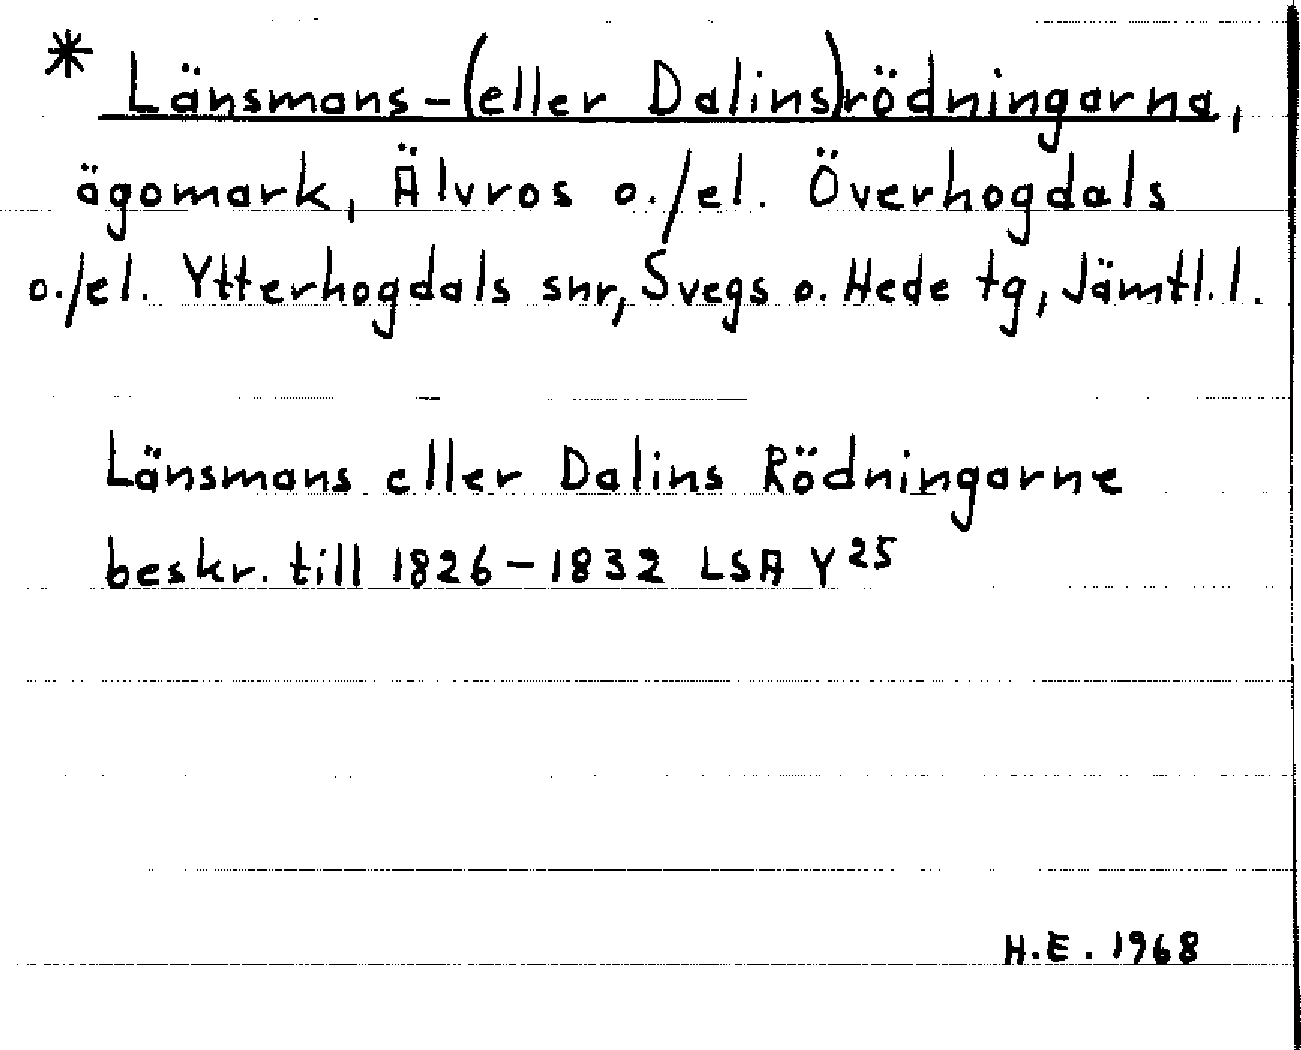 * Länsmans-(eller Dalins)rödningarna,
ägomark, Älvros o./el. Överhogdals
o./el. Ytterhogdals snr, Svegs o. Hede tg, Jämtl. l.
Länsmans eller Dalins Rödningarne
beskr. till 1826-1832 LSA Y 25
H.E. 1968